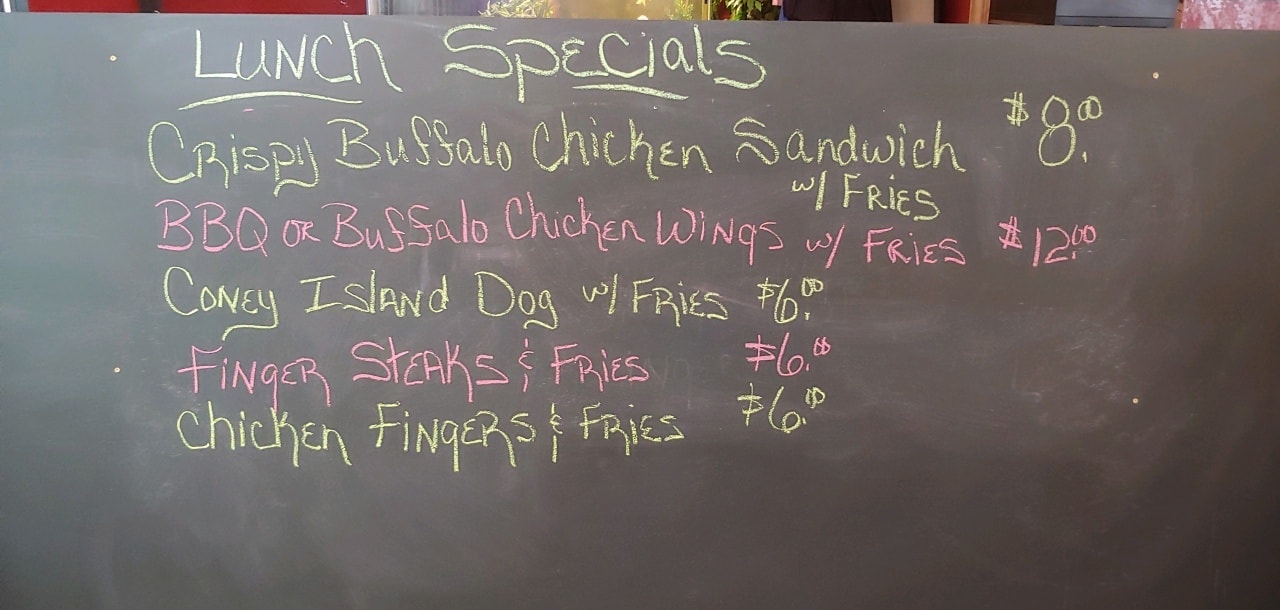 Lunch Specials
Crispy Buffalo Chicken Sandwich $8.00
w/ Fries
BBQ or Buffalo Chicken Wings w/ Fries $12.00
Coney Island Dog w/ Fries $6.00
Finger Steaks & Fries $6.00
Chicken Fingers & Fries $6.00